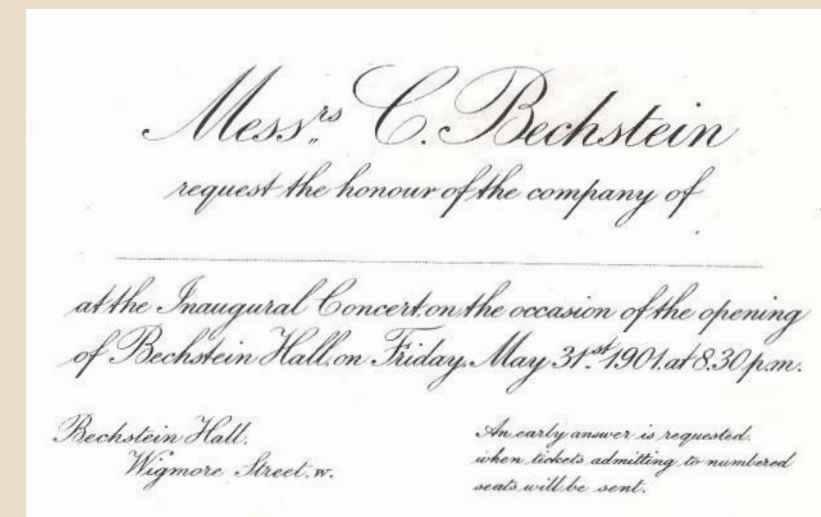 Messrs C. Bechstein
request the honour of the company of
at the Inaugural Concert on the occasion of the opening
of Bechstein Hall, on Friday, May 31st 1901. at 8.30 p.m.
Bechstein Hall.
Wigmore Street. W.
An early answer is requested.
when tickets admitting to numbered
seats will be sent.